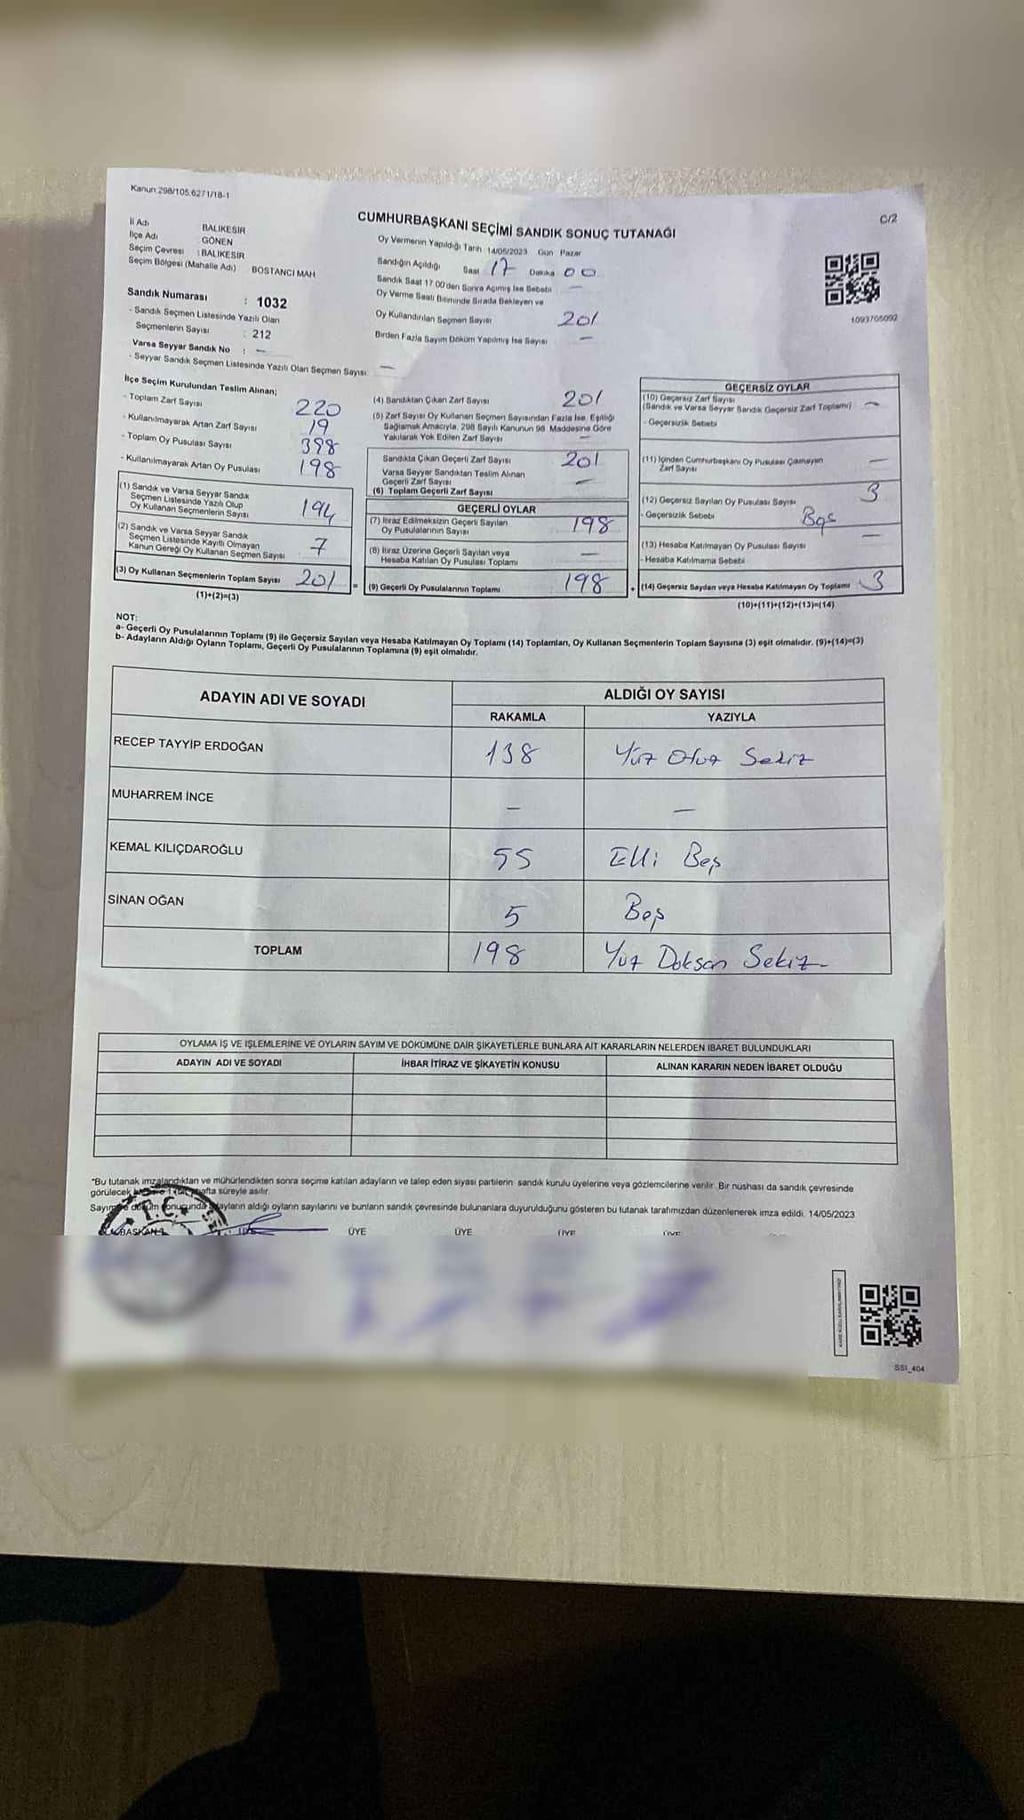 Kanun:298/105.6271/18-1
C/2
CUMHURBAŞKANI SEÇİMİ SANDIK SONUÇ TUTANAĞI
İl Adı BALIKESİR
İlçe Adı GÖNEN
Seçim Çevresi : BALIKESİR
Seçim Bölgesi (Mahalle Adı) BOSTANCI MAH
Sandık Numarası : 1032
- Sandık Seçmen Listesinde Yazılı Olan
Seçmenlerin Sayısı : 212
Varsa Seyyar Sandık No : —
- Seyyar Sandık Seçmen Listesinde Yazılı Olan Seçmen Sayısı —
Oy Vermenin Yapıldığı Tarih 14/05/2023 Gün Pazar
Sandığın Açıldığı Saat 17 Dakika 00
Sandık Saat 17:00'den Sonra Açılmış İse Sebebi —
Oy Verme Saati Bitiminde Sırada Bekleyen ve
Oy Kullandırılan Seçmen Sayısı 201
Birden Fazla Sayım Döküm Yapılmış İse Sayısı —
1093705092
İlçe Seçim Kurulundan Teslim Alınan;
- Toplam Zarf Sayısı 220
- Kullanılmayarak Artan Zarf Sayısı 19
- Toplam Oy Pusulası Sayısı 398
- Kullanılmayarak Artan Oy Pusulası 198
(1) Sandık ve Varsa Seyyar Sandık
Seçmen Listesinde Yazılı Olup
Oy Kullanan Seçmenlerin Sayısı 194
(2) Sandık ve Varsa Seyyar Sandık
Seçmen Listesinde Kayıtlı Olmayan
Kanun Gereği Oy Kullanan Seçmen Sayısı 7
(3) Oy Kullanan Seçmenlerin Toplam Sayısı 201
(1)+(2)=(3)
(4) Sandıktan Çıkan Zarf Sayısı 201
(5) Zarf Sayısı Oy Kullanan Seçmen Sayısından Fazla İse, Eşitliği
Sağlamak Amacıyla, 298 Sayılı Kanunun 98. Maddesine Göre
Yakılarak Yok Edilen Zarf Sayısı —
Sandıkta Çıkan Geçerli Zarf Sayısı 201
Varsa Seyyar Sandıktan Teslim Alınan
Geçerli Zarf Sayısı —
(6) Toplam Geçerli Zarf Sayısı
GEÇERLİ OYLAR
(7) İtiraz Edilmeksizin Geçerli Sayılan
Oy Pusulalarının Sayısı 198
(8) İtiraz Üzerine Geçerli Sayılan veya
Hesaba Katılan Oy Pusulası Toplamı —
= (9) Geçerli Oy Pusulalarının Toplamı 198
GEÇERSİZ OYLAR
(10) Geçersiz Zarf Sayısı
(Sandık ve Varsa Seyyar Sandık Geçersiz Zarf Toplamı) —
- Geçersizlik Sebebi
(11) İçinden Cumhurbaşkanı Oy Pusulası Çıkmayan
Zarf Sayısı —
(12) Geçersiz Sayılan Oy Pusulası Sayısı 3
- Geçersizlik Sebebi Boş
(13) Hesaba Katılmayan Oy Pusulası Sayısı —
- Hesaba Katılmama Sebebi
+ (14) Geçersiz Sayılan veya Hesaba Katılmayan Oy Toplamı 3
(10)+(11)+(12)+(13)=(14)
NOT:
a- Geçerli Oy Pusulalarının Toplamı (9) ile Geçersiz Sayılan veya Hesaba Katılmayan Oy Toplamı (14) Toplamları, Oy Kullanan Seçmenlerin Toplam Sayısına (3) eşit olmalıdır. (9)+(14)=(3)
b- Adayların Aldığı Oyların Toplamı, Geçerli Oy Pusulalarının Toplamına (9) eşit olmalıdır.
ADAYIN ADI VE SOYADI ALDIĞI OY SAYISI
RAKAMLA YAZIYLA
RECEP TAYYİP ERDOĞAN 138 Yüz Otuz Sekiz
MUHARREM İNCE — —
KEMAL KILIÇDAROĞLU 55 Elli Beş
SİNAN OĞAN 5 Beş
TOPLAM 198 Yüz Doksan Sekiz
OYLAMA İŞ VE İŞLEMLERİNE VE OYLARIN SAYIM VE DÖKÜMÜNE DAİR ŞİKAYETLERLE BUNLARA AİT KARARLARIN NELERDEN İBARET BULUNDUKLARI
ADAYIN ADI VE SOYADI İHBAR İTİRAZ VE ŞİKAYETİN KONUSU ALINAN KARARIN NEDEN İBARET OLDUĞU
"Bu tutanak imzalandıktan ve mühürlendikten sonra seçime katılan adayların ve talep eden siyasi partilerin sandık kurulu üyelerine veya gözlemcilerine verilir. Bir nüshası da sandık çevresinde
görülecek hafta süreyle asılır.
adayların aldığı oyların sayılarını ve bunların sandık çevresinde bulunanlara duyurulduğunu gösteren bu tutanak tarafımızdan düzenlenerek imza edildi. 14/05/2023
T.C.
BAŞKAN ÜYE ÜYE ÜYE ÜYE
SSI_404